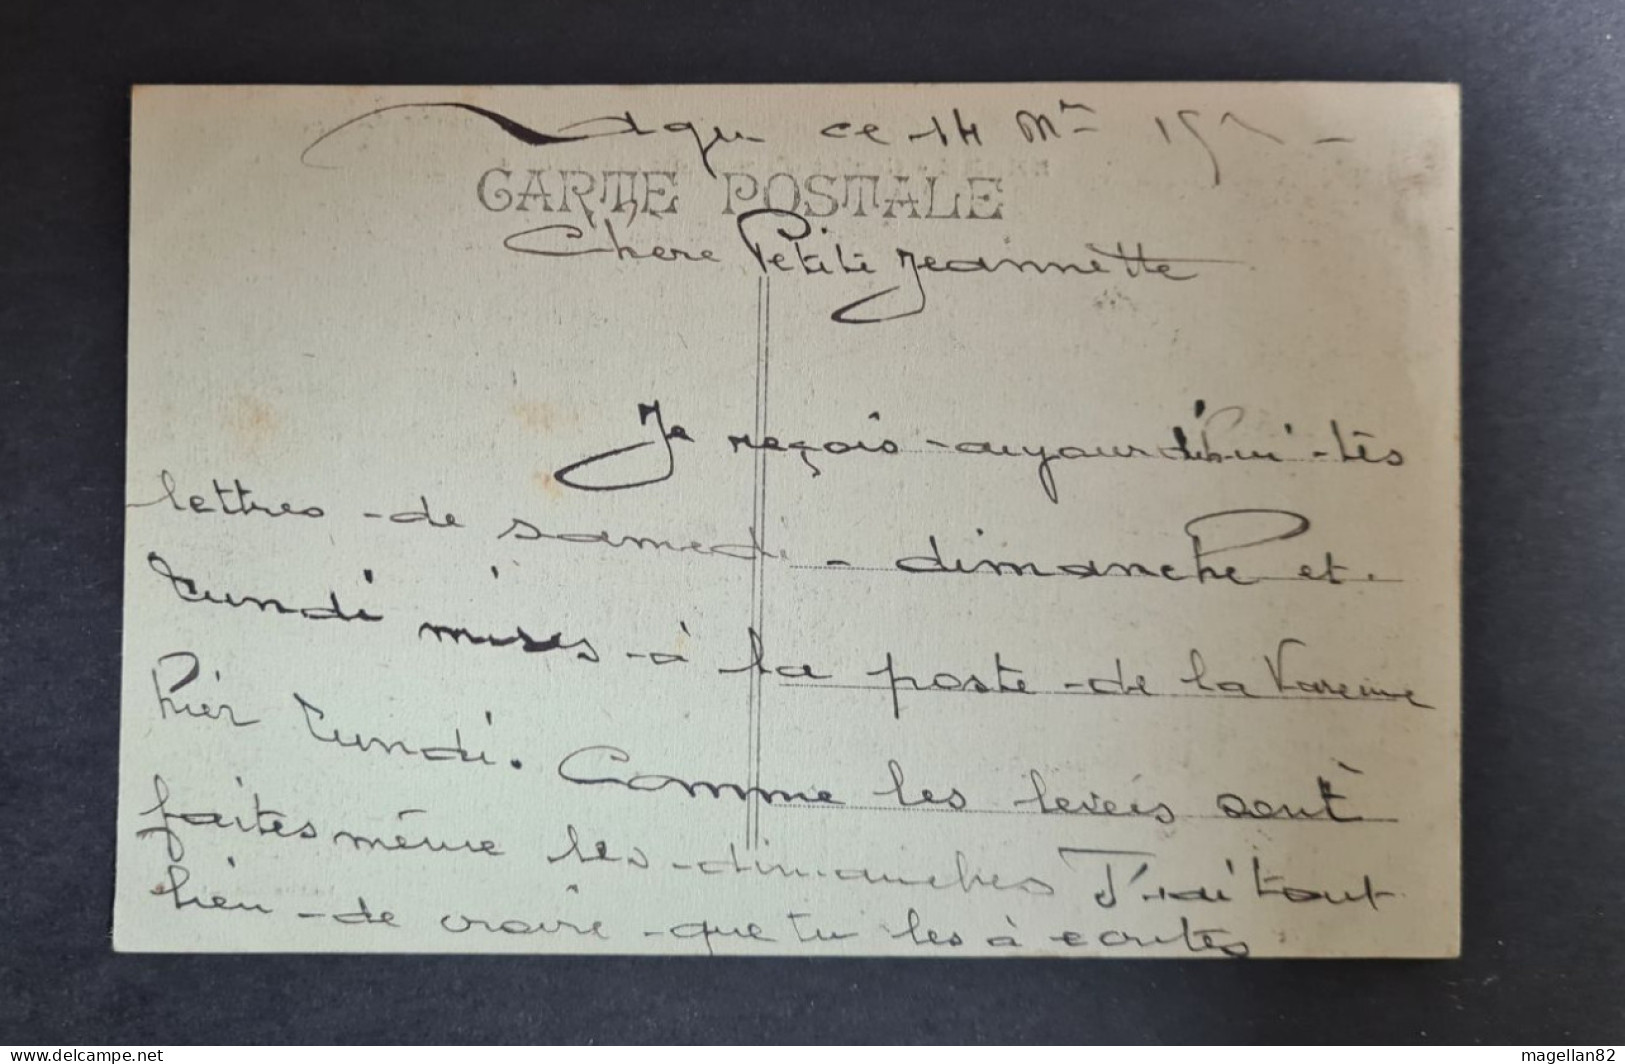 ce 14 Mrs
CARTE POSTALE
Chere Petite Jeannette
Je reçois aujourd'hui tes
lettres de samedi - dimanche et
lundi mises à la poste de la Varenne
hier lundi. Comme les levées sont
faites même les dimanches J'ai tout
lieu de croire que tu les à ecrites
magellan82
www.delcampe.net